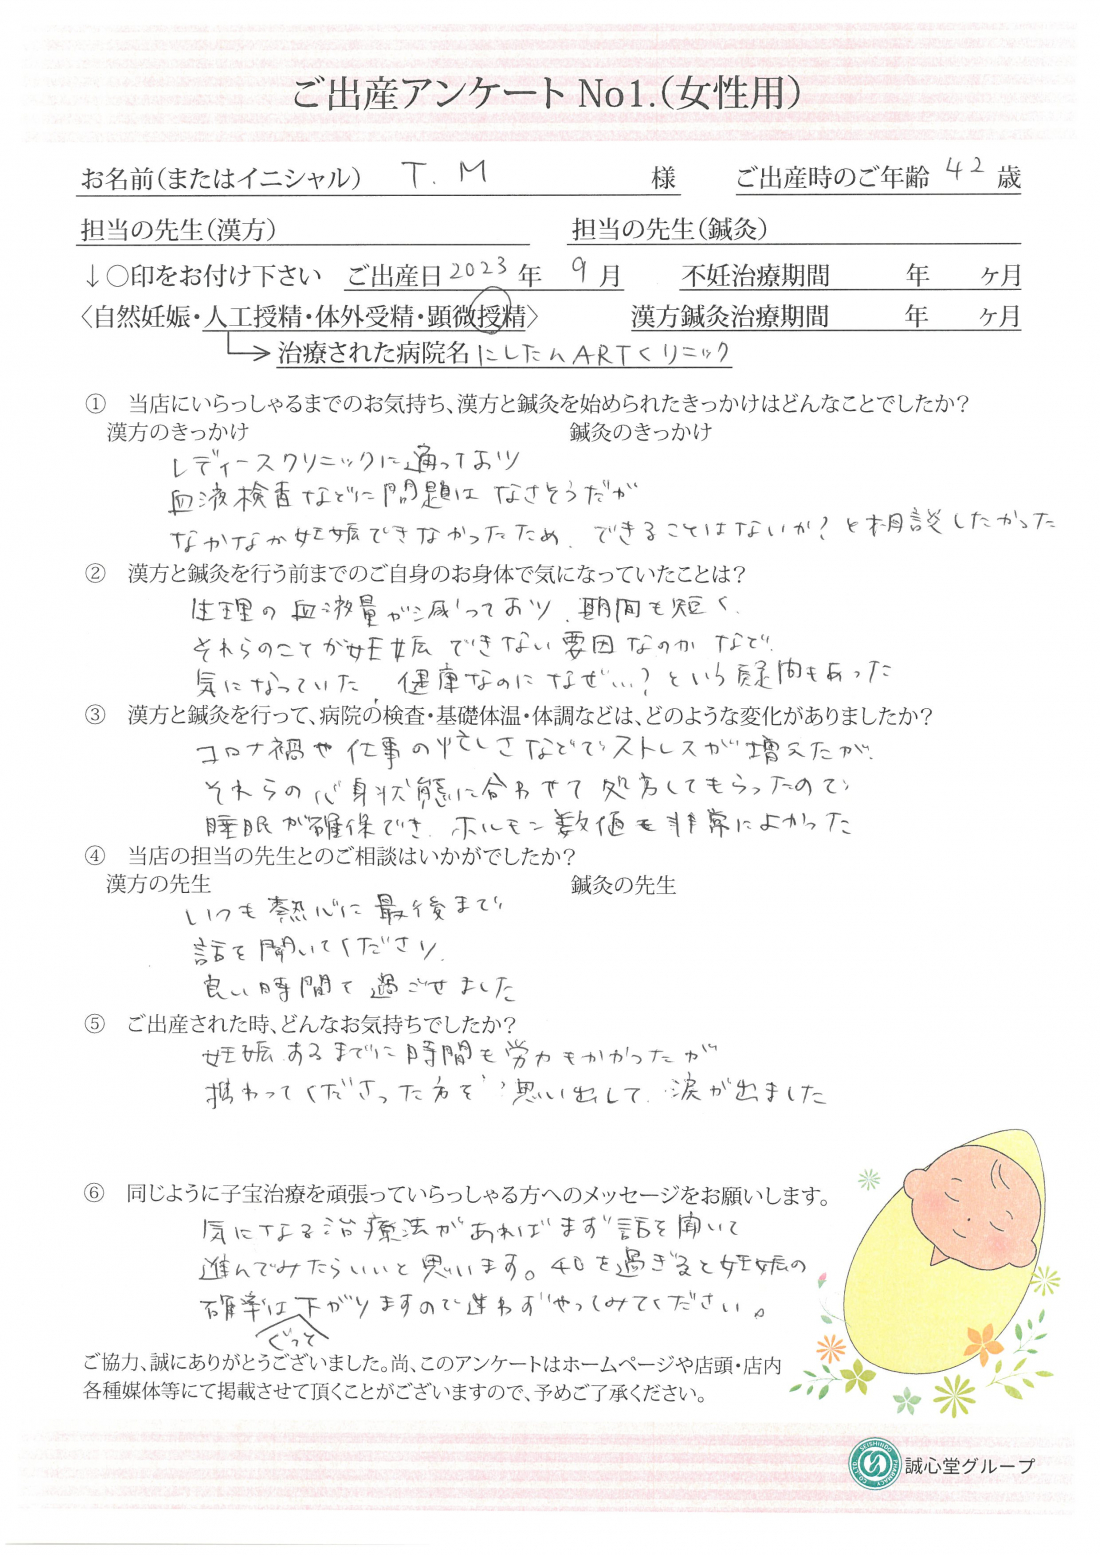 ご出産アンケート No1.(女性用)
お名前(またはイニシャル) T.M 様 ご出産時のご年齢 42 歳
担当の先生(漢方) 担当の先生(鍼灸)
↓〇印をお付け下さい ご出産日 2023 年 9 月 不妊治療期間 年 ヶ月
〈自然妊娠・人工授精・体外受精・顕微授精〉 漢方鍼灸治療期間 年 ヶ月
治療された病院名 にしたんARTクリニック
① 当店にいらっしゃるまでのお気持ち、漢方と鍼灸を始められたきっかけはどんなことでしたか?
漢方のきっかけ 鍼灸のきっかけ
レディースクリニックに通っており
血液検査などに問題はなさそうだが
なかなか妊娠できなかったため、できることはないか?と相談したかった
② 漢方と鍼灸を行う前までのご自身のお身体で気になっていたことは?
生理の血液量が減っており、期間も短く、
それらのことが妊娠できない要因なのかなど、
気になっていた、健康なのになぜ…?という疑問もあった
③ 漢方と鍼灸を行って、病院の検査・基礎体温・体調などは、どのような変化がありましたか?
コロナ禍や仕事の忙しさなどでストレスが増えたが、
それらの心身状態に合わせて処方してもらったので
睡眠が確保でき、ホルモン数値も非常によかった
④ 当店の担当の先生とのご相談はいかがでしたか?
漢方の先生 鍼灸の先生
いつも熱心に最後まで
話を聞いてくださり、
良い時間で過ごせました
⑤ ご出産された時、どんなお気持ちでしたか?
妊娠するまでに時間も労力もかかったが
携わってくださった方を思い出して、涙が出ました
⑥ 同じように子宝治療を頑張っていらっしゃる方へのメッセージをお願いします。
気になる治療法があればまず話を聞いて
進んでみたらいいと思います。40を過ぎると妊娠の
確率はぐっと下がりますので迷わずやってみてください。
ご協力、誠にありがとうございました。尚、このアンケートはホームページや店頭・店内
各種媒体等にて掲載させて頂くことがございますので、予めご了承ください。
誠心堂グループ